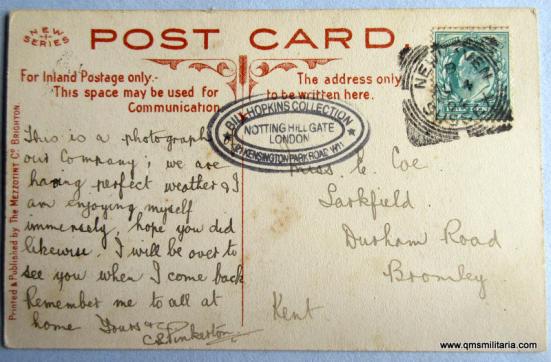 NEW
SERIES
POST CARD.
For Inland Postage only.-
This space may be used for
Communication.
The address only
to be written here.
BILL HOPKINS COLLECTION
NOTTING HILL GATE
LONDON
KENSINGTON PARK ROAD W11
This is a photograph of
our Company; we are
having perfect weather & I
am enjoying myself
immensely, hope you did
likewise. I will be over to
see you when I come back
Remember me to all at
home Yours &c
Pinkerton
Miss C. Coe
Larkfield.
Durham Road
Bromley
Kent
Printed & Published by The Mezzotint Co. Brighton
www.qmsmilitaria.com